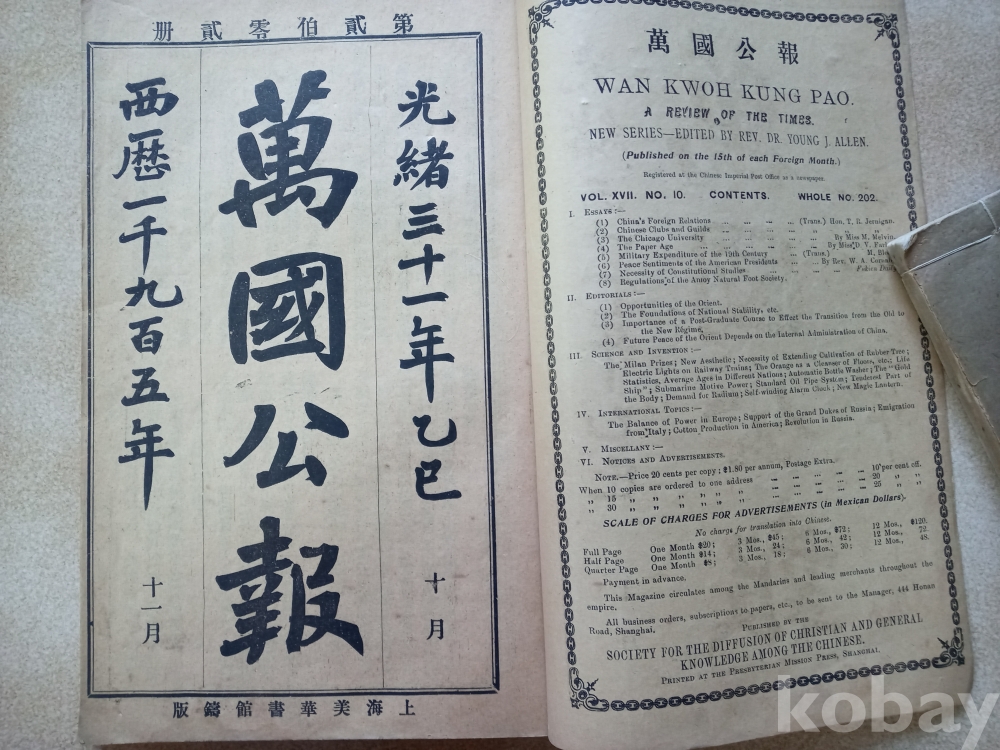 第貳佰零貳册
光緒三十一年乙巳 十月
萬國公報
西曆一千九百五年 十一月
上海美華書館鑄版
萬國公報
WAN KWOH KUNG PAO.
A REVIEW OF THE TIMES.
NEW SERIES—EDITED BY REV. DR. YOUNG J. ALLEN.
(Published on the 15th of each Foreign Month.)
Registered at the Chinese Imperial Post Office as a newspaper.
VOL. XVII. NO. 10. CONTENTS. WHOLE NO. 202.
I. ESSAYS:—
(1) China's Foreign Relations ... ... ... ... (Trans.) Hon. T. R. Jernigan.
(2) Chinese Clubs and Guilds ... ... ... ... „ „ „ „
(3) The Chicago University ... ... ... ... By Miss M. Melvin.
(4) The Paper Age ... ... ... ... By Miss D. V.
(5) Military Expenditure of the 19th Century ... (Trans.) M.
(6) Peace Sentiments of the American Presidents ... ... By Rev. W. A.
(7) Necessity of Constitutional Studies ... ... ...
(8) Regulations of the Amoy Natural Foot Society.
II. EDITORIALS:—
(1) Opportunities of the Orient.
(2) The Foundations of National Stability, etc.
(3) Importance of a Post-Graduate Course to Effect the Transition from the Old to
the New Régime.
(4) Future Peace of the Orient Depends on the Internal Administration of China.
III. SCIENCE AND INVENTION:—
The Milan Prizes; New Aesthetic; Necessity of Extending Cultivation of Rubber Tree;
Electric Lights on Railway Trains; The Orange as a Cleanser of Floors, etc.; Life
Statistics, Average Ages in Different Nations; Automatic Bottle Washer; The "Gold
Ship"; Submarine Motive Power; Standard Oil Pipe System; Tenderest Part of
the Body; Demand for Radium; Self-winding Alarm Clock; New Magic Lantern.
IV. INTERNATIONAL TOPICS:—
The Balance of Power in Europe; Support of the Grand Dukes of Russia; Emigration
from Italy; Cotton Production in America; Revolution in Russia.
V. MISCELLANY:—
VI. NOTICES AND ADVERTISEMENTS.
NOTE.—Price 20 cents per copy; $1.80 per annum, Postage Extra.
When 10 copies are ordered to one address ... ... ... ... 10 per cent off.
„ 15 „ „ „ „ „ „ ... ... ... ... 20 „ „
„ 30 „ „ „ „ „ „ ... ... ... ... 25 „ „
SCALE OF CHARGES FOR ADVERTISEMENTS (in Mexican Dollars).
No charge for translation into Chinese.
Full Page One Month $20; 3 Mos., $45; 6 Mos., $72; 12 Mos., $120.
Half Page One Month $14; 3 Mos., 24; 6 Mos., 42; 12 Mos., 72
Quarter Page One Month $8; 3 Mos., 18; 6 Mos., 30; 12 Mos., 48.
Payment in advance.
This Magazine circulates among the Mandarins and leading merchants throughout the
empire.
All business orders, subscriptions to papers, etc., to be sent to the Manager, 444 Honan
Road, Shanghai.
PUBLISHED BY THE
SOCIETY FOR THE DIFFUSION OF CHRISTIAN AND GENERAL
KNOWLEDGE AMONG THE CHINESE.
PRINTED AT THE PRESBYTERIAN MISSION PRESS, SHANGHAI.
kobay